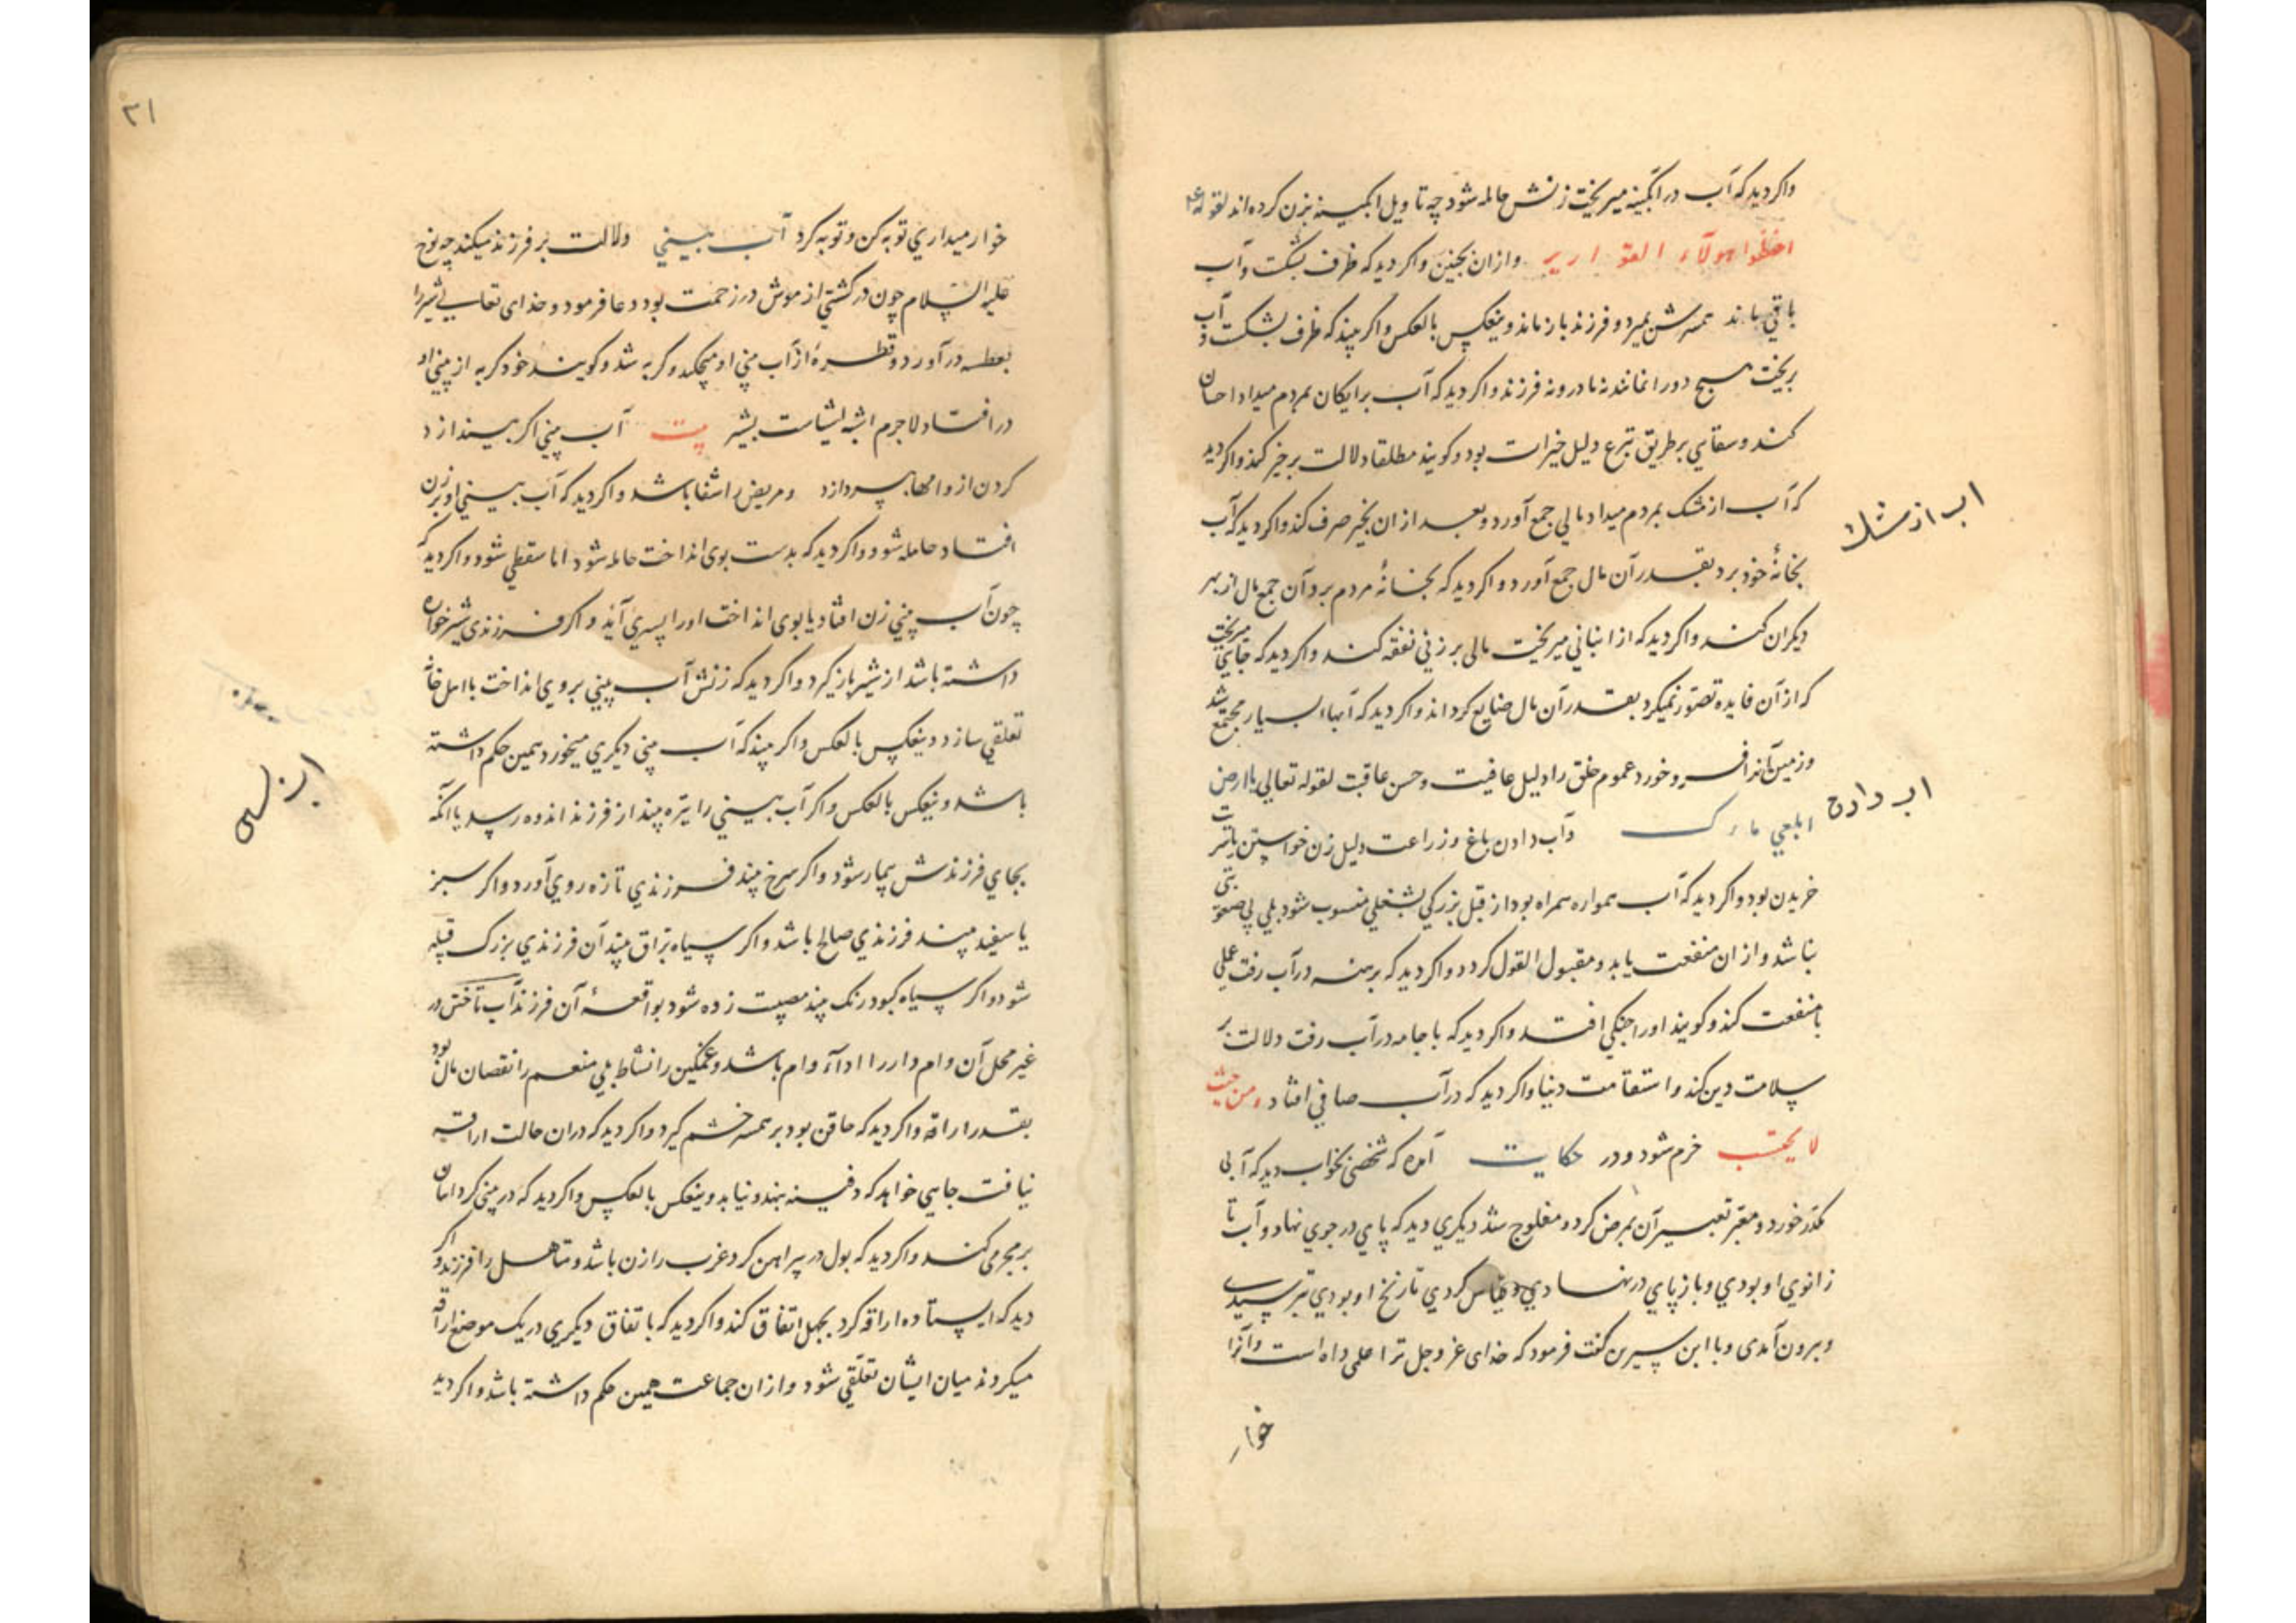 واكر ديد كه آب در آبكينه ميريخت زنش حامله شود چه تاويل آبكينه بزن كرده‌اند لقوله
احفظوا هولآء القوارير وازان بجنين واكر ديد كه ظرف بشكست وآب
باقي ماند همسرش بميرد و فرزند باز ماند وبعكس بالعكس واكر بيند كه ظرف بشكست و آب
بريخت هيچ دو را نماند نه مادر ونه فرزند واكر ديد كه آب برايكان بمردم ميداد احسان
كند وسقايي بر طريق تبرع دليل خيرات بود وكويند مطلقا دلالت بر خير كند واكر ديد
كه آب از مشك بمردم ميداد مالي جمع آورد وبعد ازان بخير صرف كند واكر ديد كه آب
بخانۀ خود برد بقدر آن مال جمع آورد واكر ديد كه بخانۀ مردم برد آن جمع مال از بهر
ديكران كند واكر ديد كه از انباني ميريخت مالى بر زني نفقه كند واكر ديد كه جايي ميريخت
كه از آن فايده تصور نميكرد بقدر آن مال ضايع كرداند واكر ديد كه آبها بسيار مجتمع شد
وزمين آنرا فرو خورد عموم خلق را دليل عافيت وحسن عاقبت لقوله تعالي يا ارض
ابلعي ماءك وآب دادن باغ وزراعت دليل زن خواستن يا سريت
خريدن بود واكر ديد كه آب همواره همراه بود از قبل بزركي بشغلي منسوب شود بلي بي صعوبتي
نباشد وازان منفعت يابد ومقبول القول كردد واكر ديد كه برهنه در آب رفت عملي
با منفعت كند وكويند اورا جنكي افتد واكر ديد كه با جامه در آب رفت دلالت بر
سلامت دين كند واستقامت دنيا واكر ديد كه در آب صافي افتاد من حيث
لا يحتسب خرم شود ودر حكايت آمده كه شخصي بخواب ديد كه آبى
مكدر خورد ومعبر تعبير آن بمرض كرد ومفلوج شد ديكري ديد كه پاي در جوي نهاد وآب تا
زانوي او بودي وباز پاي در نهادي وقياس كردي تا زنخ او بودي بترسيدى
وبرون آمدى وبا ابن سيرين كفت فرمود كه خداى عز وجل ترا علمى داده است وآنرا
خوار
اب از مشك
اب دادن
٢١
خوار ميداري توبه كن وتوبه كرد آب بيني دلالت بر فرزند ميكند چه نوح
عليه السلام چون در كشتي از موش در زحمت بود دعا فرمود وخداى تعالى شير را
بعطسه در آورد وقطرۀ از آب بيني او بچكيد وكربه شد وكويند خود كربه از بيني او
در افتاد لاجرم اشبه بشير بيت آب بيني اكر بيندازد
كردن از وامها بپردازد ومريض را شفا باشد واكر ديد كه آب بيني او بر زن
افتاد حامله شود واكر ديد كه بدست بوى انداخت حامله شود اما سقطي شود واكر ديد كه
چون آب بيني زن افتاد يا بوى انداخت اورا پسري آيد واكر فرزندى شيرخواره
داشته باشد از شير باز كيرد واكر ديد كه زنش آب بيني بر وي انداخت با اهل خانه
تعلقي سازد وبعكس بالعكس واكر بيند كه آب بيني ديكري ميخورد همين حكم داشته
باشد وبعكس بالعكس واكر آب بيني را تيره بيند از فرزند اندوه رسد يا آنكه
بجاي فرزندش بيمار شود واكر سرخ بيند فرزندي تازه روي آورد واكر سبز
يا سفيد بيند فرزندي صالح باشد واكر سياه براق بيند آن فرزندي بزرك قبيله
شود واكر سياه كبود رنك بيند مصيبت زده شود بواقعۀ آن فرزند آب تاختن در
غير محل آن وام دار را اداء وام باشد وغمكين را نشاط بلي منعم را نقصان مال بود
بقدر اراقه واكر ديد كه حاقن بود بر همسر خشم كيرد واكر ديد كه دران حالت اراقه
نيافت جايي خواهد كه دفينه بنهد ونيابد وبعكس بالعكس واكر ديد كه در بيني كرد امان
بر مجرمى كند واكر ديد كه بول در پيراهن كرد عزب را زن باشد ومتاهل را فرزند واكر
ديد كه ايستاده اراقه كرد بجهل انفاق كند واكر ديد كه باتفاق ديكري در يك موضع اراقه
ميكردند ميان ايشان تعلقي شود وازان جماعت همين حكم داشته باشد واكر ديد